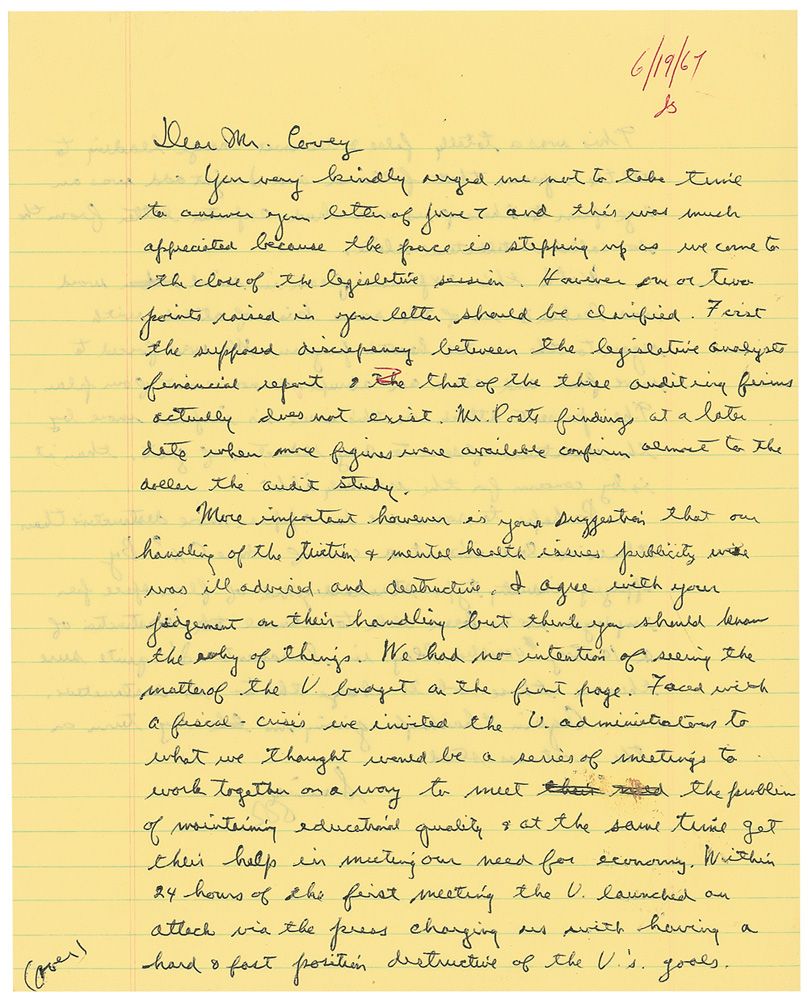 6/19/67
Js
Dear Mr. Covey
You very kindly urged me not to take time
to answer your letter of June 7 and this was much
appreciated because the pace is stepping up as we come to
the close of the legislative session. However one or two
points raised in your letter should be clarified. First
the supposed discrepancy between the legislative analysts
financial report & the that of the three auditing firms
actually does not exist. Mr. Posts findings at a later
date when more figures were available confirm almost to the
dollar the audit study.
More important however is your suggestion that our
handling of the tuition & mental health issues publicity wise
was ill advised and destructive. I agree with your
judgement on their handling but think you should know
the why of things. We had no intention of seeing the
matter of the U. budget on the front page. Faced with
a fiscal-crisis we invited the U. administrators to
what we thought would be a series of meetings to
work together on a way to meet their need the problem
of maintaining educational quality & at the same time get
their help in meeting our need for economy. Within
24 hours of the first meeting the U. launched an
attack via the press charging us with having a
hard & fast position destructive of the U.'s. goals.
(over)